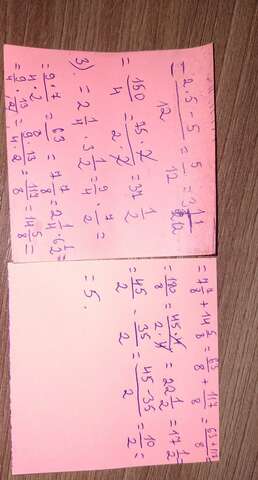 − 2·5−5/12 = 5/12 =
= 150/4 = 75·2/2·2 = 37 1/2
3). = 2 1/4 · 3 1/2 = 9/4 · 7/2 =
= 9·7/4·2 = 63/8 = 7 7/8 = 2 1/4 · 6 1/2 =
= 9/4 · 13/2 = 9·13/4·2 = 117/8 = 14 5/8 =
= 7 7/8 + 14 5/8 = 63/8 + 117/8 = 63+117/8
= 180/8 = 45·4/2·4 = 22 1/2 = 17 1/2
= 45/2 - 35/2 = 45-35/2 = 10/2 =
= 5.